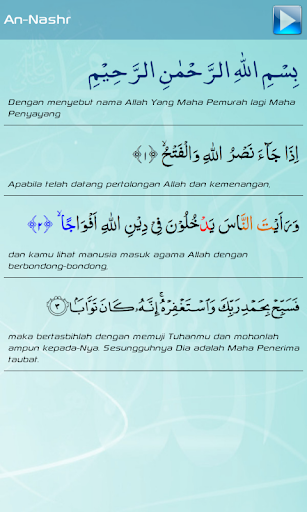 An-Nashr
بِسْمِ اللهِ الرَّحْمٰنِ الرَّحِيْمِ
Dengan menyebut nama Allah Yang Maha Pemurah lagi Maha
Penyayang
اِذَا جَآءَ نَصْرُ اللهِ وَالْفَتْحُۙ ﴿١﴾
Apabila telah datang pertolongan Allah dan kemenangan,
وَرَاَيْتَ النَّاسَ يَدْخُلُوْنَ فِيْ دِيْنِ اللهِ اَفْوَاجًاۙ ﴿٢﴾
dan kamu lihat manusia masuk agama Allah dengan
berbondong-bondong,
فَسَبِّحْ بِحَمْدِ رَبِّكَ وَاسْتَغْفِرْهُۗ اِنَّهٗ كَانَ تَوَّابًا ﴿٣﴾
maka bertasbihlah dengan memuji Tuhanmu dan mohonlah
ampun kepada-Nya. Sesungguhnya Dia adalah Maha Penerima
taubat.